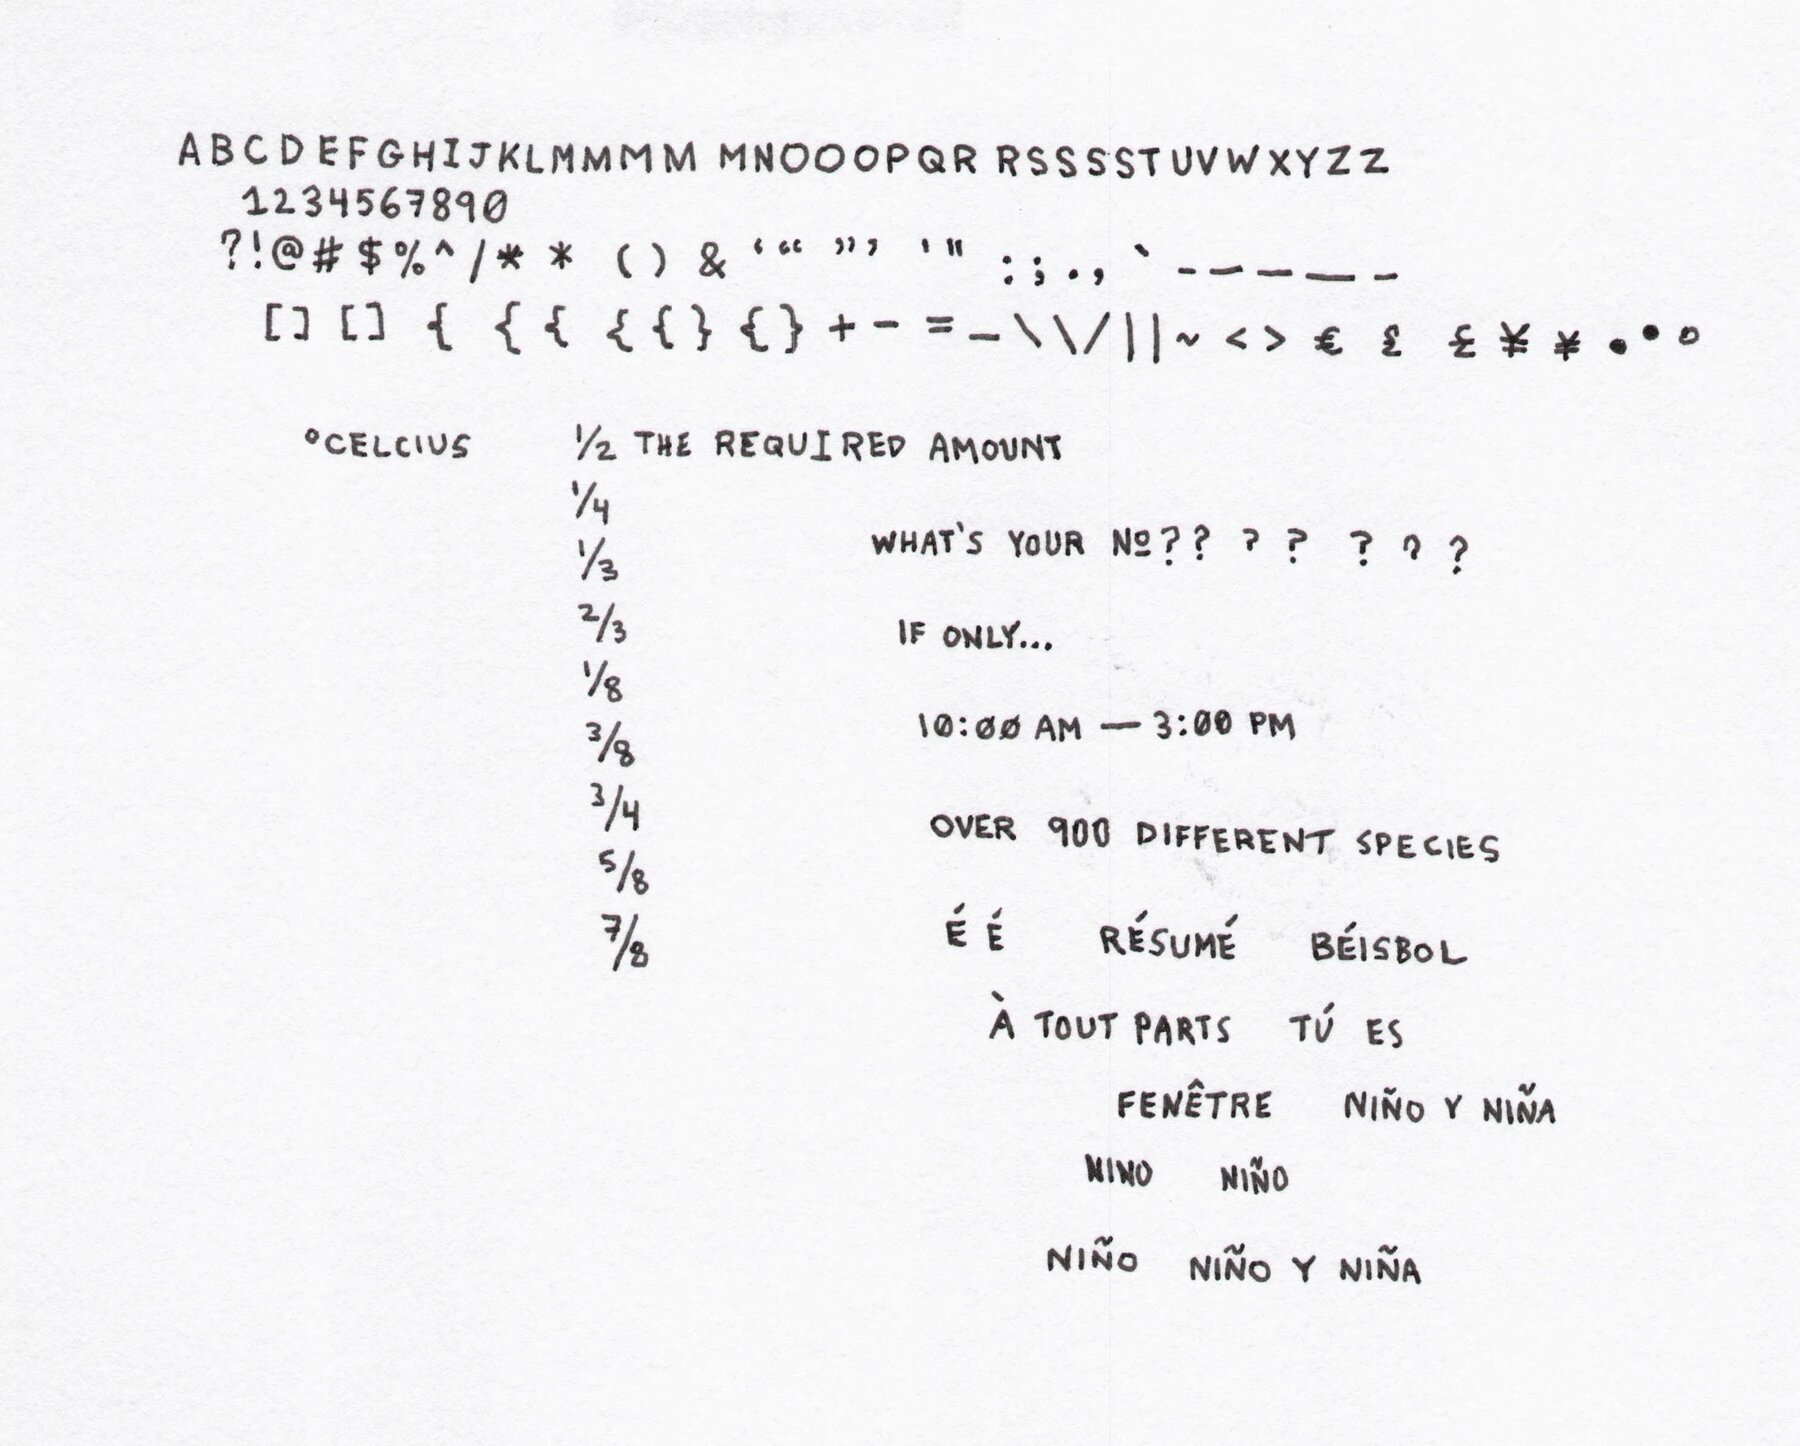 ABCDEFGHIJKLMMMM MNOOOPQR RSSSSTUVWXYZZ
1234567890
?!@#$%^/* * () & ‘ “ ” ’ ' " : ; . , ` - – — — -
[] [] { { { { { } { } + - = _ \ \ / | | ~ < > € £ £ ¥ ¥ • • °
°CELCIUS ½ THE REQUIRED AMOUNT
1/4
WHAT'S YOUR Nº?? ? ? ? ? ?
1/3
2/3
IF ONLY...
1/8
3/8
10:00 AM — 3:00 PM
3/4
OVER 900 DIFFERENT SPECIES
5/8
7/8
É É RÉSUMÉ BÉISBOL
À TOUT PARTS TÚ ES
FENÊTRE NIÑO Y NIÑA
NINO NIÑO
NIÑO NIÑO Y NIÑA